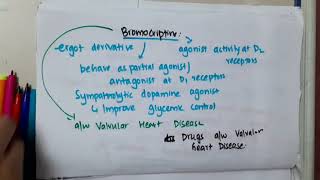 Bromocriptine:
-ergot derivative
agonist activity at D2 receptors
behave as partial agonist/
antagonist at D1 receptors
Sympatholytic dopamine agonist
↳ Improve glycemic control
a/w Valvular Heart Disease
Drugs a/w Valvular
heart Disease.